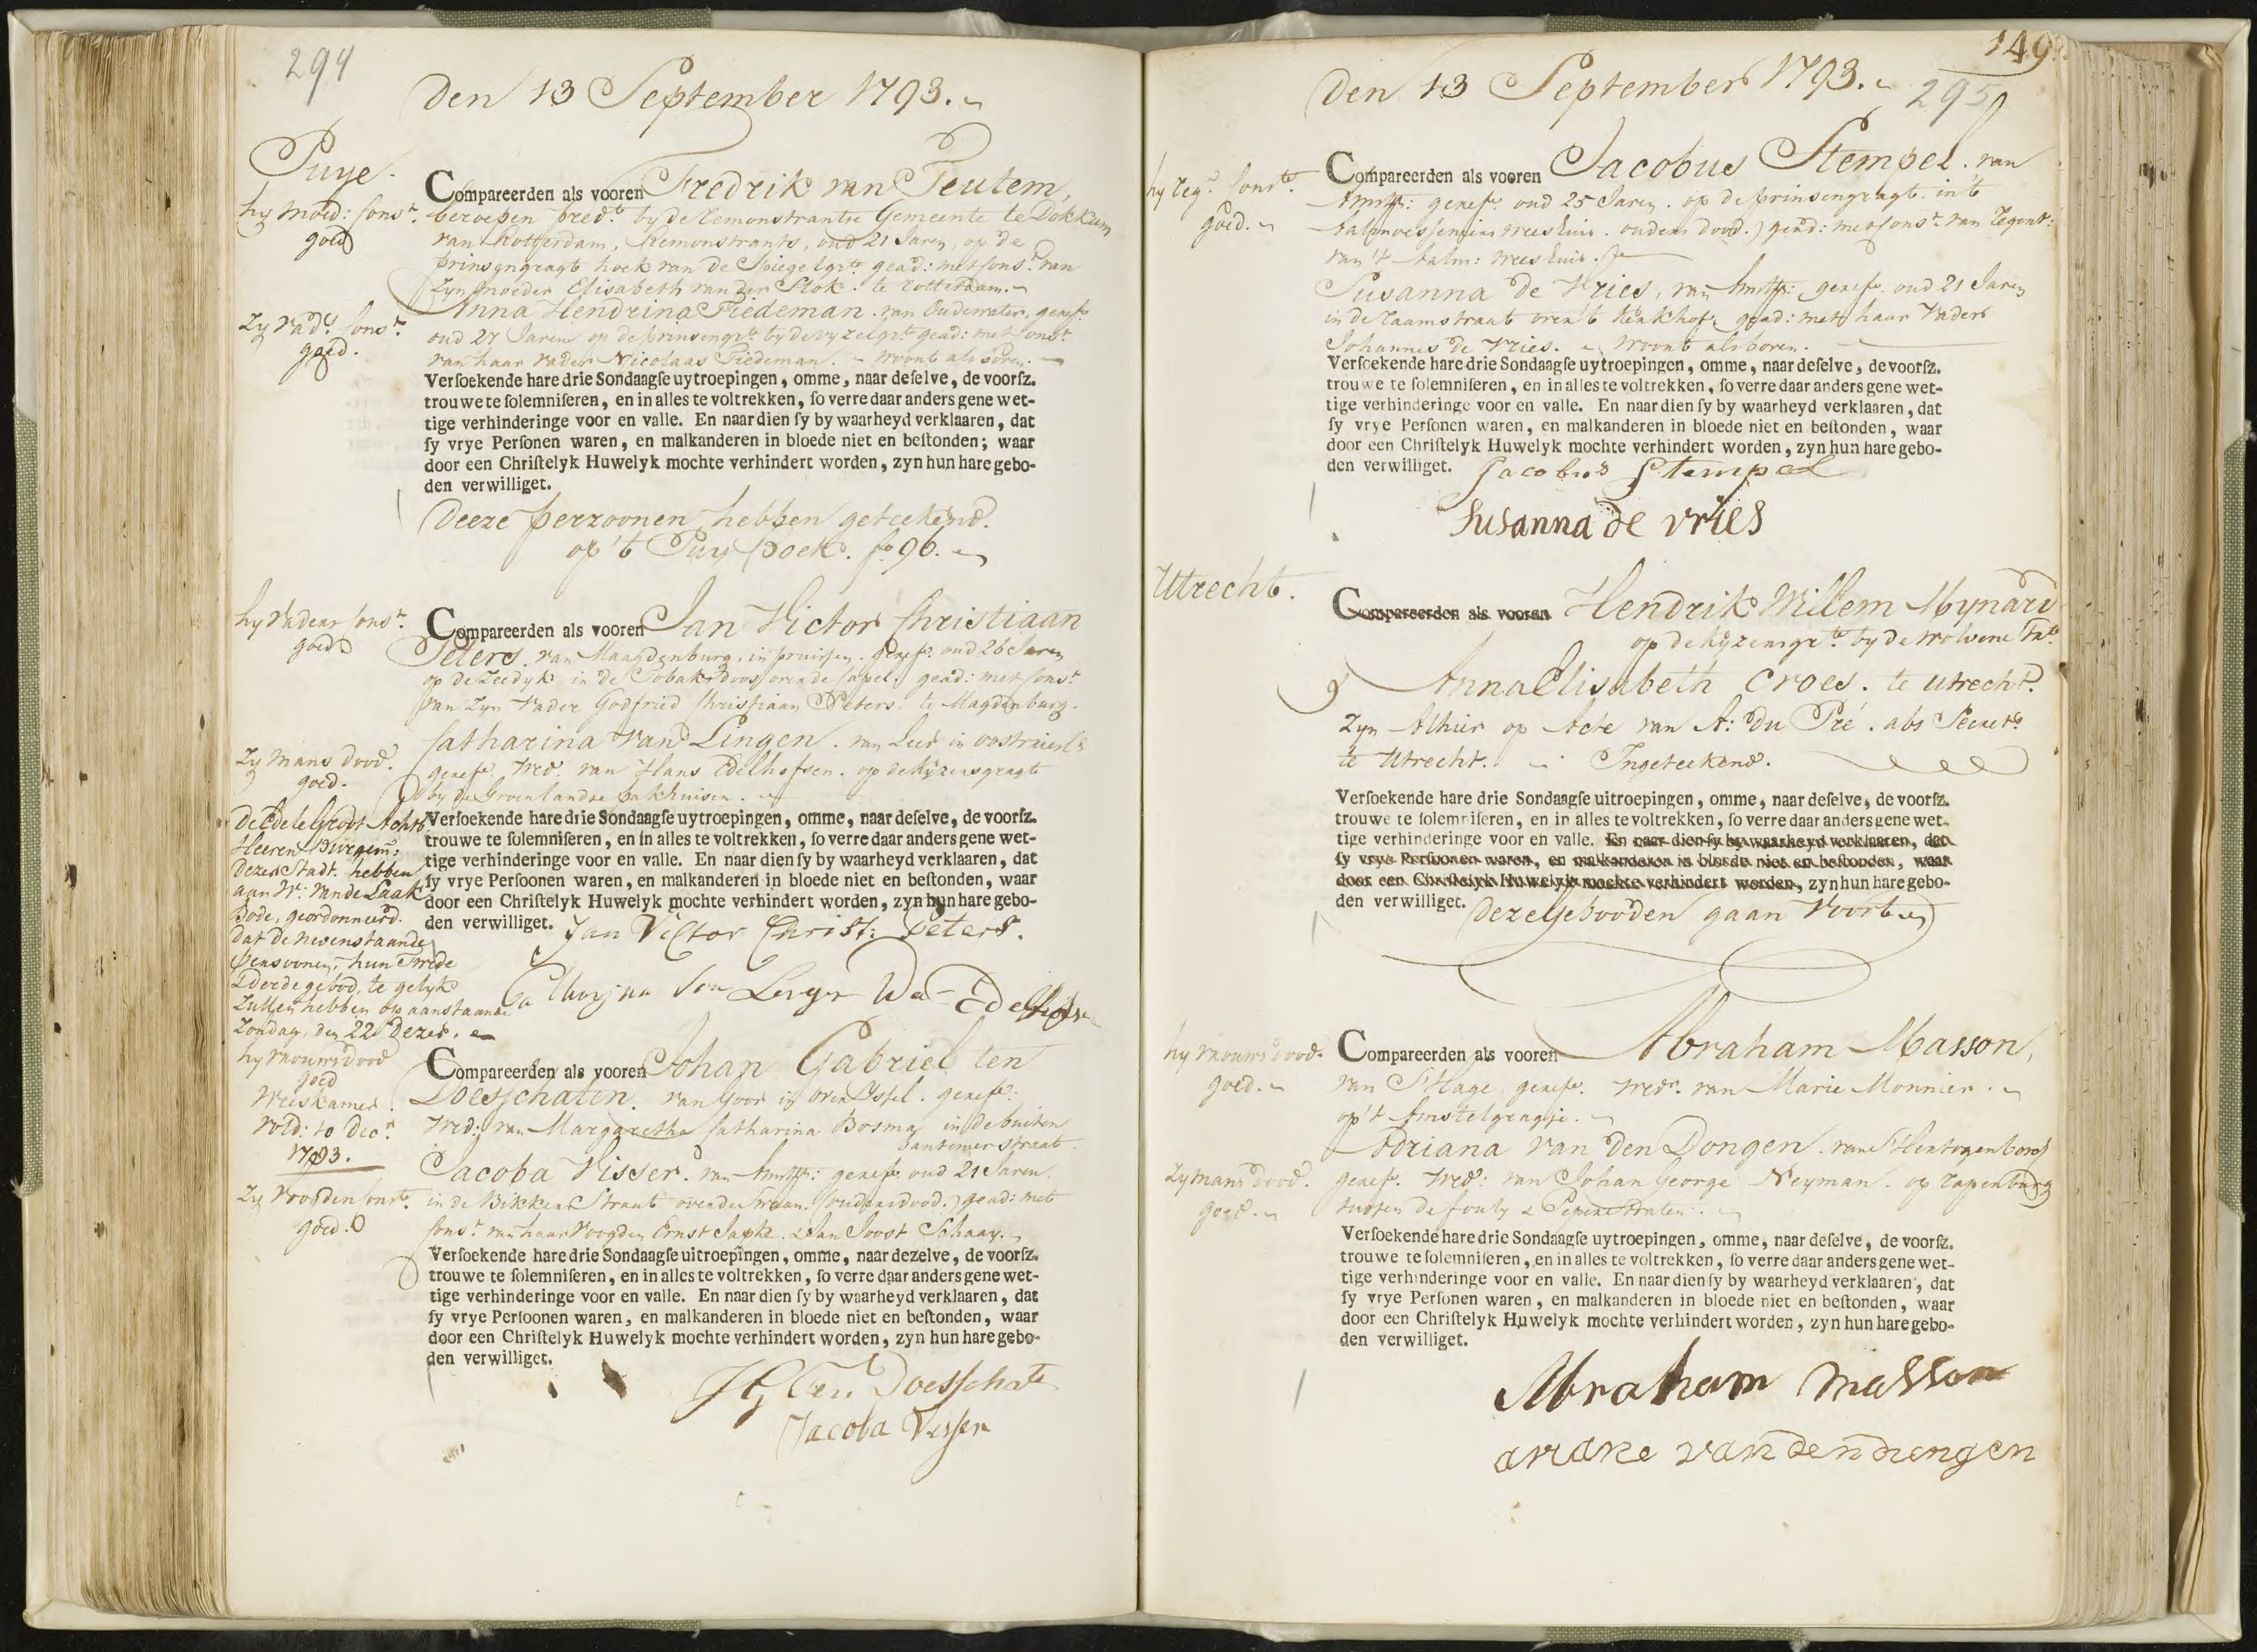 294
Den 13 September 1793.
Puye.
hy moed: Const.
goed
Compareerden als vooren Fredrik van Teutem,
beroepen pred.t by de Remonstrantse Gemeente te Dokkum
van Rotterdam, Remonstrants, oud 21 Jaren, op de
prinsengragt hoek van de Spiegelgrt. gead: met Const. van
Zyn moeder Elisabeth van der Stok. te Rotterdam.
Zy vad.s Const.
goed.
Anna Hendrina Tiedeman. van Oudewater, geref.
oud 27 Jaren op de prinsengrt. by de vyzelgrt. gead: met Const.
van haar vader Nicolaas Tiedeman. woont als boven.
Verſoekende hare drie Sondaagſe uytroepingen, omme, naar deſelve, de voorſz.
trouwe te ſolemniſeren, en in alles te voltrekken, ſo verre daar anders gene wet-
tige verhinderinge voor en valle. En naar dien ſy by waarheyd verklaaren, dat
ſy vrye Perſonen waren, en malkanderen in bloede niet en beſtonden; waar
door een Chriſtelyk Huwelyk mochte verhindert worden, zyn hun hare gebo-
den verwilliget.
Deeze perzoonen hebben geteekend.
op 't Puy boek. fo. 96.
hy vaders Const.
goed
Compareerden als vooren Jan Victor Christiaan
Peters. van Maagdenburg, in pruisen. geref. oud 26 Jaren
op de Zeedyk in de Tobaksdoos over de Capel. gead: met Const.
van Zyn vader Godfried Christiaan Peters. te Magdenburg.
Zy mans dood.
goed.
Catharina van Lingen. van Leer in oostvriesl.
geref. wed. van Hans Edelhofsen. op de Kyzersgragt
by de Groenlandse pakhuisen.
De Edele Groot Achtb.
Heeren Burgem:
Dezer Stadt. hebben
aan W: van de Laak
Bode, geordonneerd.
dat de nevenstaande
persoonen, hun Twede
& Derde gebod, te gelyk
Zullen hebben op aanstaande
Zondag, den 22 Dezer.
Verſoekende hare drie Sondaagſe uytroepingen, omme, naar deſelve, de voorſz.
trouwe te ſolemniſeren, en in alles te voltrekken, ſo verre daar anders gene wet-
tige verhinderinge voor en valle. En naar dien ſy by waarheyd verklaaren, dat
ſy vrye Perſoonen waren, en malkanderen in bloede niet en beſtonden, waar
door een Chriſtelyk Huwelyk mochte verhindert worden, zyn hun hare gebo-
den verwilliget.
Jan Victor Christ: Peters.
hy vrouws dood
goed
Weeskamer.
vold: 10 Decr.
1793.
Compareerden als vooren Johan Gabriel ten
Doesschaten. van Goor in over Yssel. geref.
wed: van Margaretha Catharina Bosma in de buiten
bantemer straat.
Zy Voogden Const.
goed.
Jacoba Visser. van Amstr: geref. oud 21 Jaren.
in de Bikkers Straat over de Kraan. (ouders dood.) gead: met
Const. van haar voogden Ernst Japke. & Jan Joost Schaay.
Verſoekende hare drie Sondaagſe uitroepingen, omme, naar dezelve, de voorſz.
trouwe te ſolemniſeren, en in alles te voltrekken, ſo verre daar anders gene wet-
tige verhinderinge voor en valle. En naar dien ſy by waarheyd verklaaren, dat
ſy vrye Perſoonen waren, en malkanderen in bloede niet en beſtonden, waar
door een Chriſtelyk Huwelyk mochte verhindert worden, zyn hun hare gebo-
den verwilliget.
JG ten Doesschate
Jacoba Visser
149
Den 13 September 1793.
295
hy reg.s Const.
goed.
Compareerden als vooren Jacobus Stempel. van
Amstr: geref. oud 25 Jaren. op de prinsengragt. in 't
Aalmoesseniers weeshuis. ouders dood.) gead: met Const. van Regent:
van 't Aalm: weeshuis.
Susanna de Vries, van Amstr: geref. oud 21 Jaren
in de Raamstraat over 't kerkhof. gead: met haar Vader
Johannes de Vries. woont als boven.
Verſoekende hare drie Sondaagſe uytroepingen, omme, naar deſelve, de voorſz.
trouwe te ſolemniſeren, en in alles te voltrekken, ſo verre daar anders gene wet-
tige verhinderinge voor en valle. En naar dien ſy by waarheyd verklaaren, dat
ſy vrye Perſonen waren, en malkanderen in bloede niet en beſtonden, waar
door een Chriſtelyk Huwelyk mochte verhindert worden, zyn hun hare gebo-
den verwilliget.
Jacobus Stempel
Susanna de vries
Utrecht.
Compareerden als vooren Hendrik Willem Mynard
op de Kyzersgrt. by de wolvene strt.
&
Anna Elisabeth Croes. te Utrecht.
Zyn Alhier op Acte van A: Du Pré. als Secrets.
te Utrecht. Ingeteekend.
Verſoekende hare drie Sondaagſe uitroepingen, omme, naar deſelve, de voorſz.
trouwe te ſolemniſeren, en in alles te voltrekken, ſo verre daar anders gene wet-
tige verhinderinge voor en valle. En naar dien ſy by waarheyd verklaaren, dat
ſy vrye Perſoonen waren, en malkanderen in bloede niet en beſtonden, waar
door een Chriſtelyk Huwelyk mochte verhindert worden, zyn hun hare gebo-
den verwilliget.
Deze Gebooden gaan voort
hy vrouws dood.
goed.
Compareerden als vooren Abraham Masson,
van S'Hage. geref. wedr. van Marie Monnier.
op 't Amstelgragje.
Zy mans dood.
goed.
Adriana van den Dongen. van S'Hertogenbosch
geref. wed: van Johan George Neyman. op Rapenburg
tussen de fouly & Peperstraten.
Verſoekende hare drie Sondaagſe uytroepingen, omme, naar deſelve, de voorſz.
trouwe te ſolemniſeren, en in alles te voltrekken, ſo verre daar anders gene wet-
tige verhinderinge voor en valle. En naar dien ſy by waarheyd verklaaren, dat
ſy vrye Perſonen waren, en malkanderen in bloede niet en beſtonden, waar
door een Chriſtelyk Huwelyk mochte verhindert worden, zyn hun hare gebo-
den verwilliget.
Abraham Masson